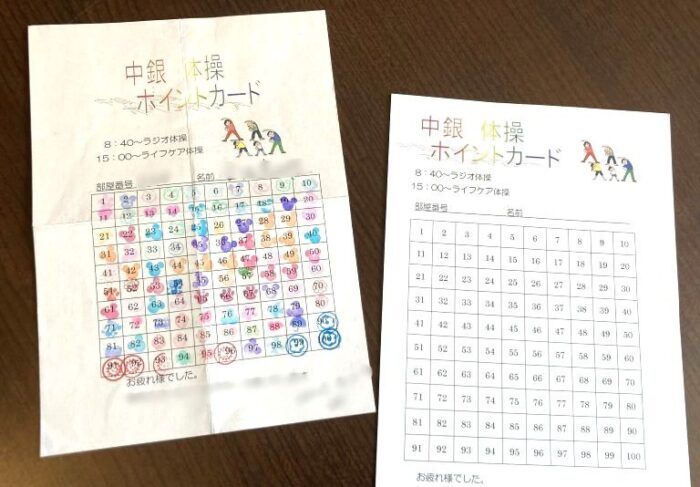 中銀 体操
ポイントカード
8：40～ラジオ体操
15：00～ライフケア体操
部屋番号 名前
1 2 3 4 5 6 7 8 9 10
11 12 13 14 15 16 17 18 19 20
21 22 23 24 25 26 27 28 29 30
31 32 33 34 35 36 37 38 39 40
41 42 43 44 45 46 47 48 49 50
51 52 53 54 55 56 57 58 59 60
61 62 63 64 65 66 67 68 69 70
71 72 73 74 75 76 77 78 79 80
81 82 83 84 85 86 87 88 89 90
91 92 93 94 95 96 97 98 99
お疲れ様でした。
中銀 体操
ポイントカード
8：40～ラジオ体操
15：00～ライフケア体操
部屋番号 名前
1 2 3 4 5 6 7 8 9 10
11 12 13 14 15 16 17 18 19 20
21 22 23 24 25 26 27 28 29 30
31 32 33 34 35 36 37 38 39 40
41 42 43 44 45 46 47 48 49 50
51 52 53 54 55 56 57 58 59 60
61 62 63 64 65 66 67 68 69 70
71 72 73 74 75 76 77 78 79 80
81 82 83 84 85 86 87 88 89 90
91 92 93 94 95 96 97 98 99 100
お疲れ様でした。